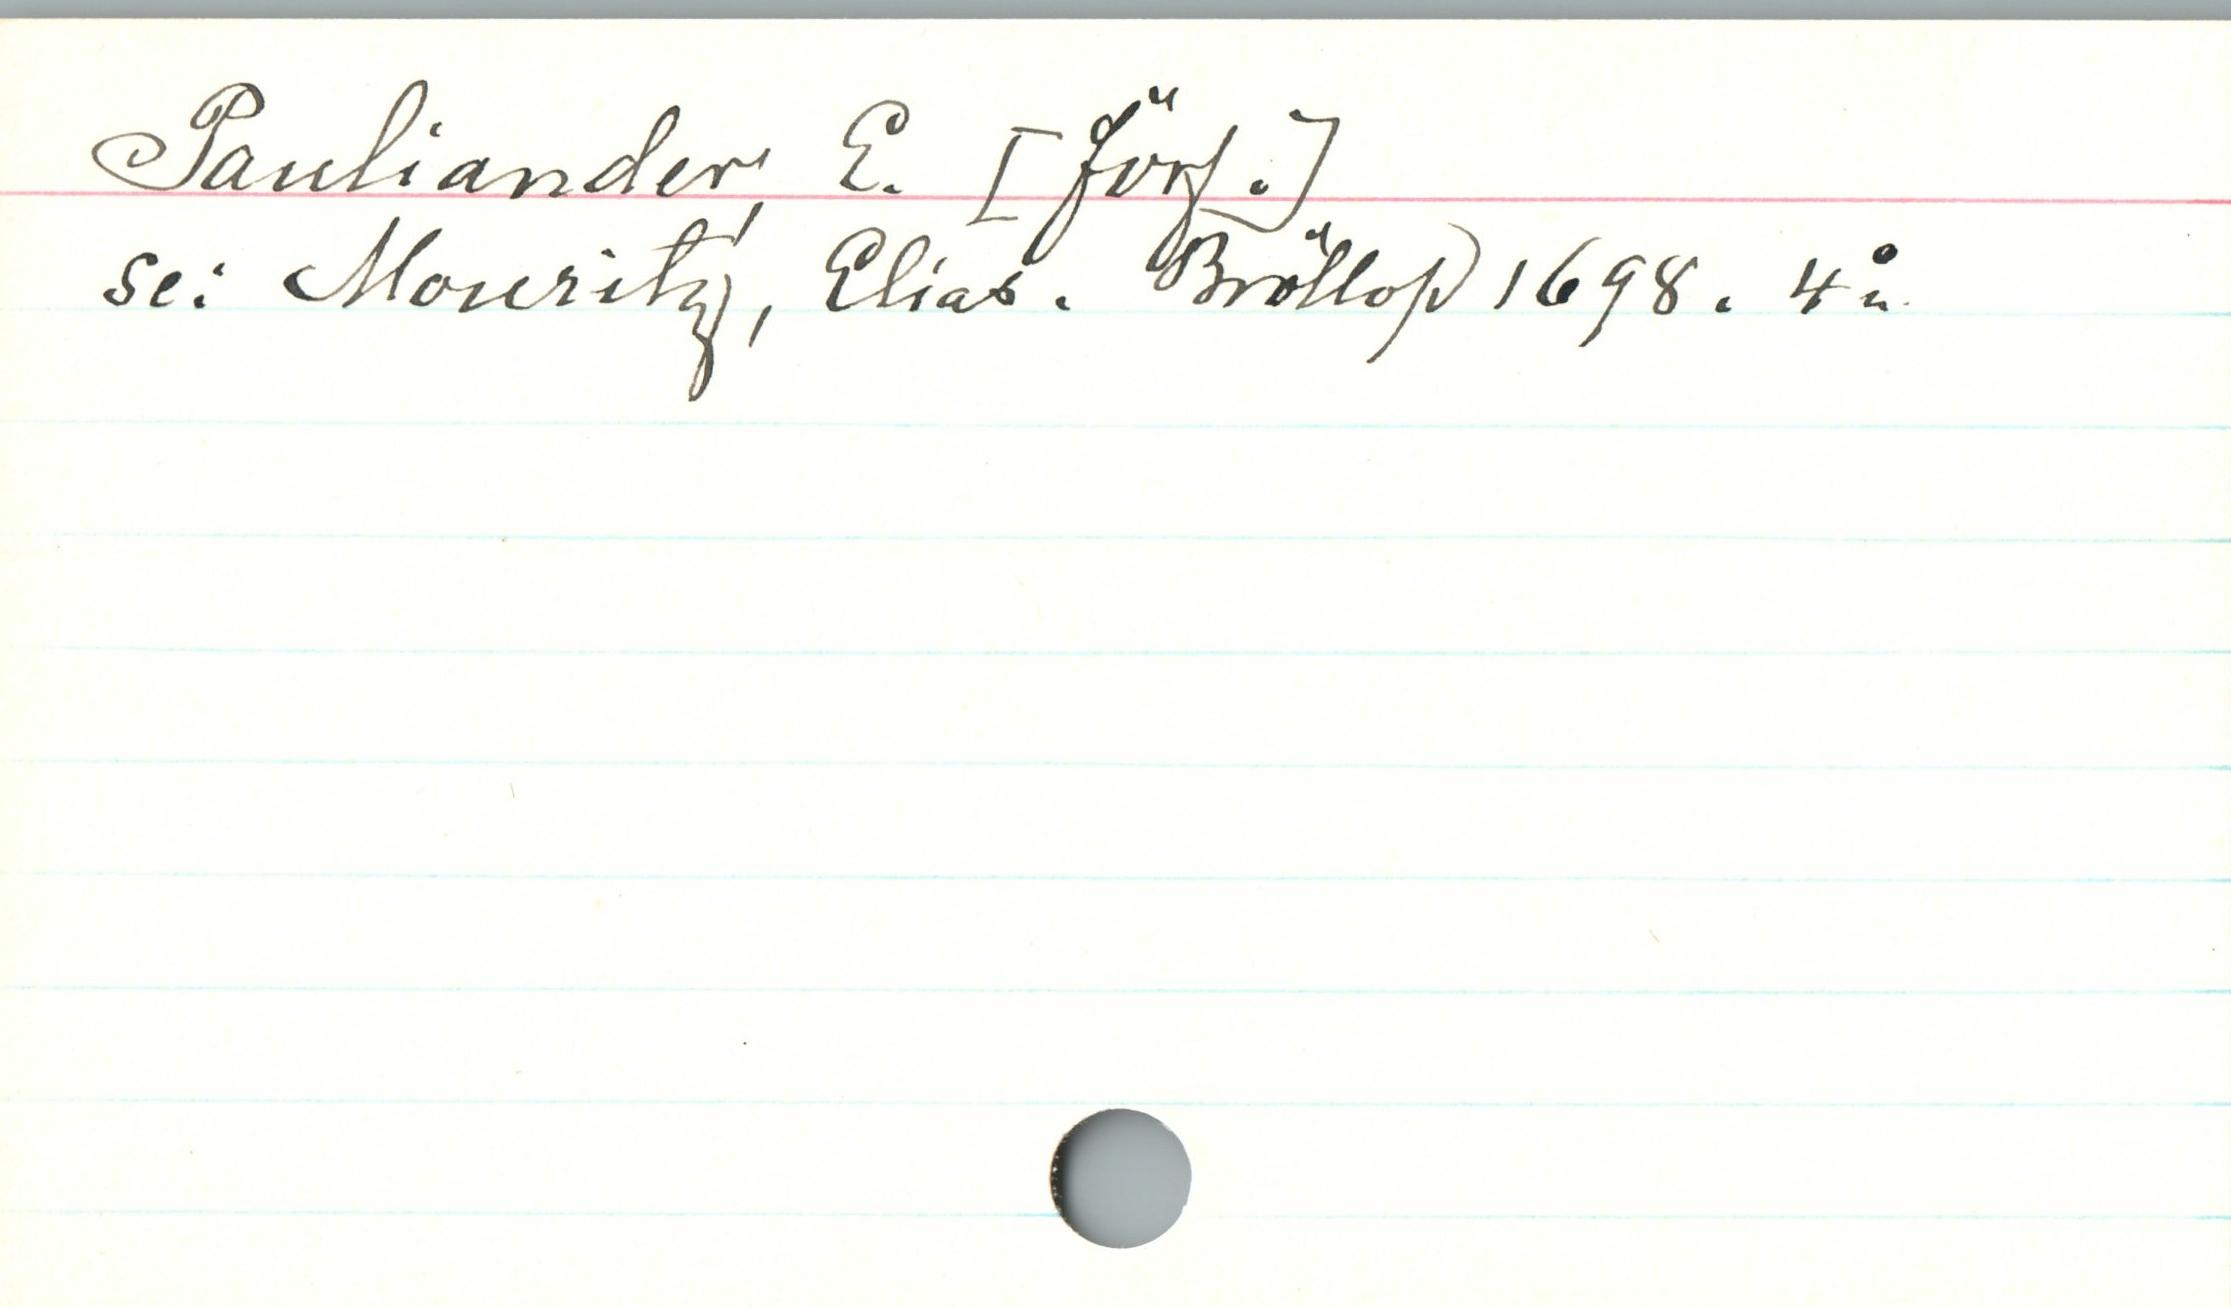 Pauliander, E. [förf.]
se: Mouritz, Elias. Bröllop 1698. 4:o